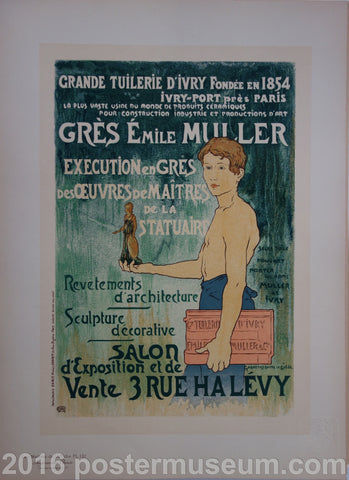 GRANDE TUILERIE D'IVRY FONDÉE EN 1854
IVRY-PORT près PARIS
LA PLUS VASTE USINE DU MONDE DE PRODUITS CÉRAMIQUES
POUR CONSTRUCTION INDUSTRIE ET PRODUCTIONS D'ART
GRÈS ÉMILE MULLER
EXECUTION en GRÈS
des ŒUVRES de MAÎTRES
DE LA
STATUAIRE
MULLER
IVRY
Revêtements
d'architecture
Sculpture
décorative
TUILERIE D'IVRY
EMILE MULLER
SALON
d'Exposition et de
Vente 3 RUE HALÉVY
2016 postermuseum.com